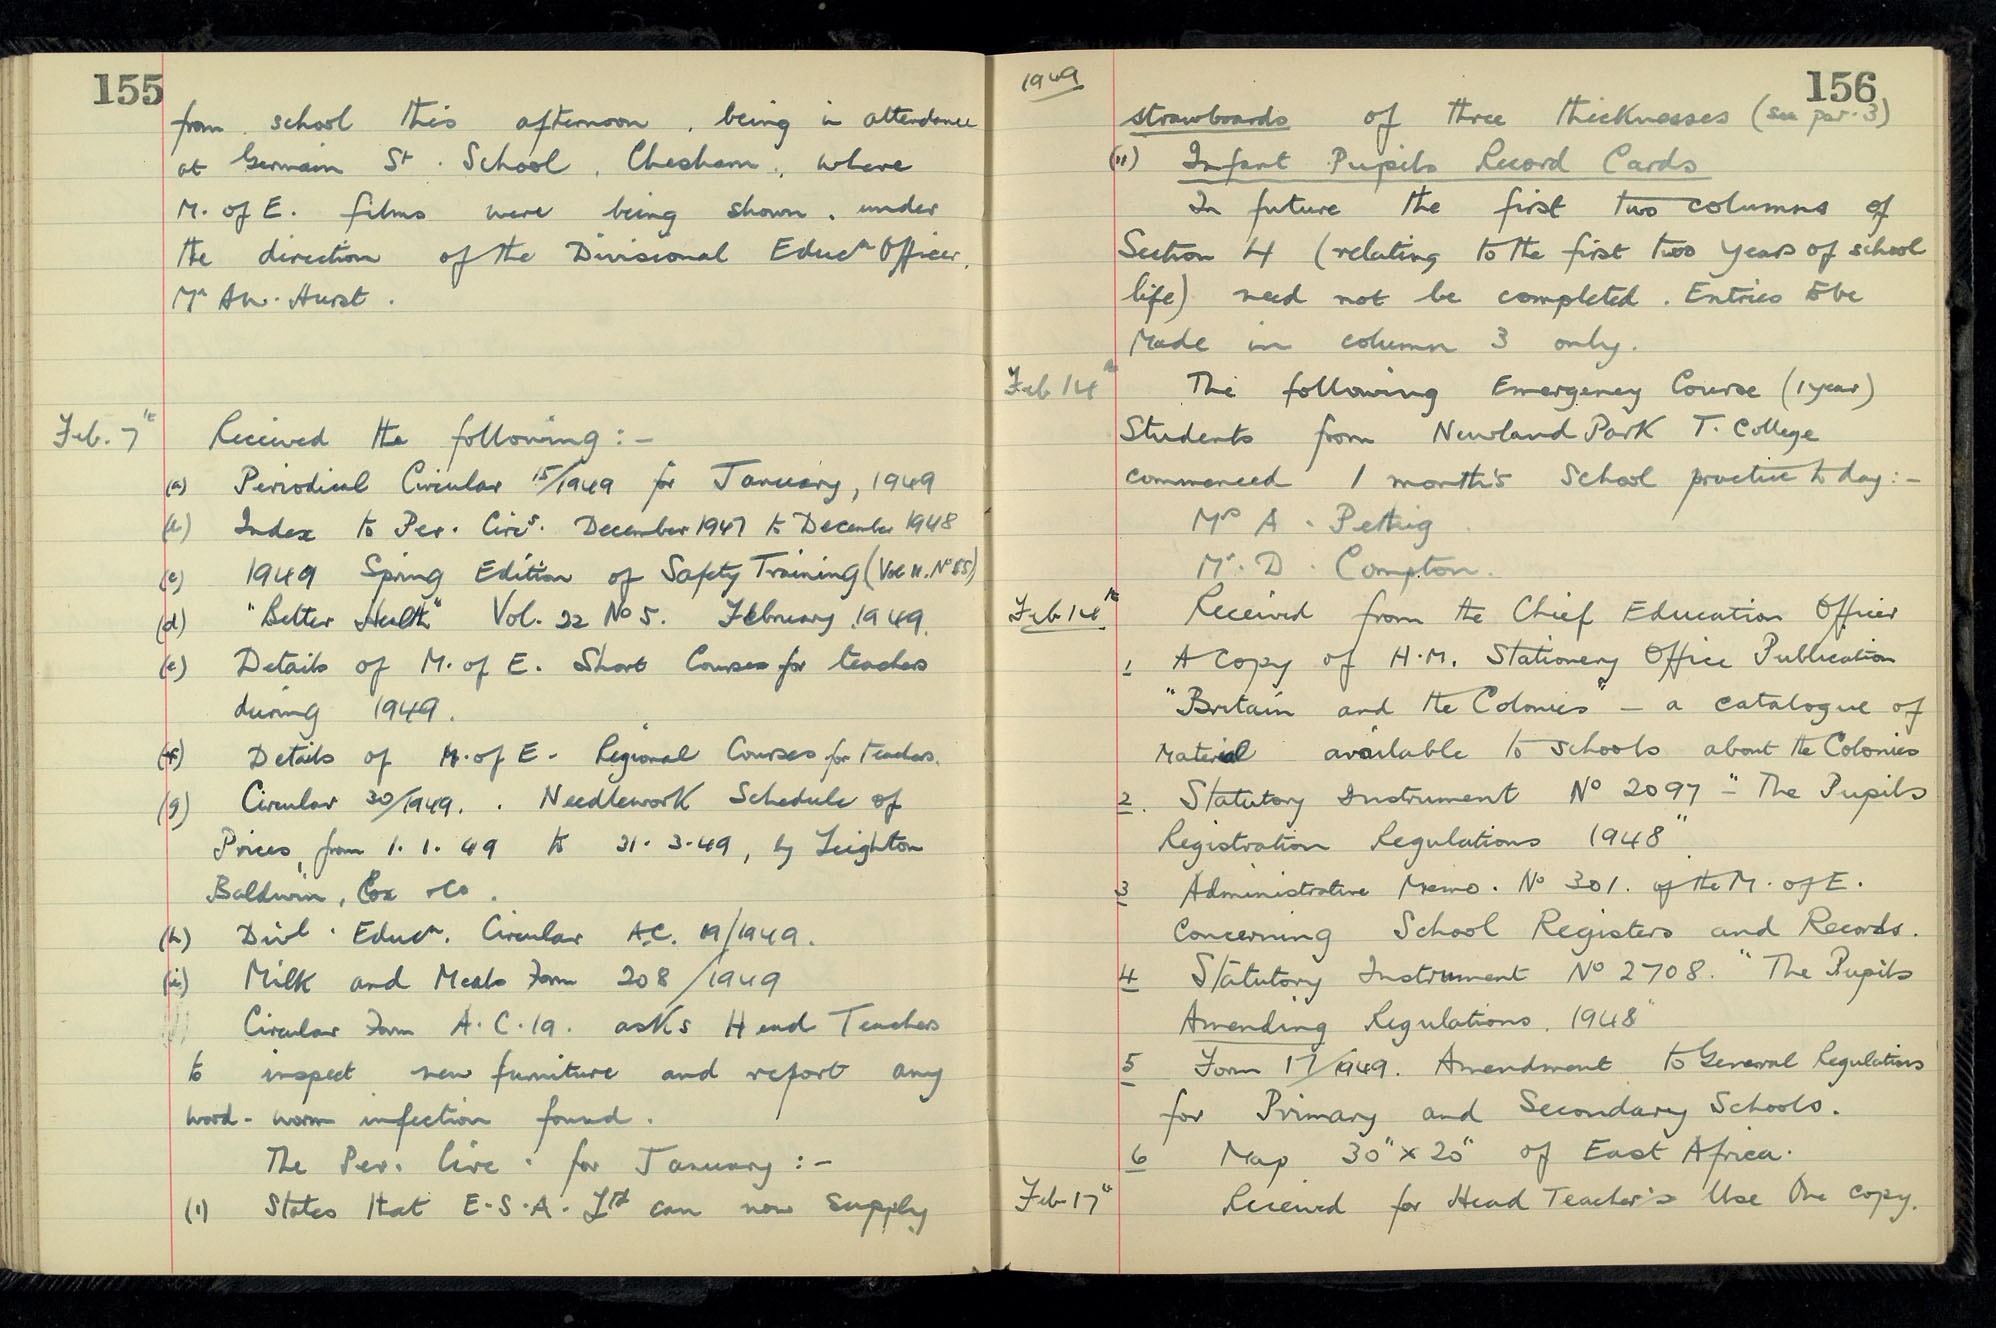 155
from school this afternoon, being in attendance
at Germain St. School, Chesham, where
M. of E. films were being shown, under
the direction of the Divisional Educn Officer,
Mr Hurst.
Feb. 7th Received the following:-
(a) Periodical Circular 15/1949 for January, 1949
(b) Index to Per. Circs. December 1947 to December 1948
(c) 1949 Spring Edition of Safety Training (Vol 11. No 55)
(d) "Better Health" Vol. 22 No 5. February 1949.
(e) Details of M. of E. Short Courses for teachers
during 1949.
(f) Details of M. of E. Regional Courses for teachers.
(g) Circular 30/1949. Needlework Schedule of
Prices, from 1.1.49 to 31.3.49, by Leighton
Baldwin, Cox & Co.
(h) Divl. Educn. Circular A.C. 19/1949.
(i) Milk and Meals Form 208/1949
Circular Form A.C.19. asks Head Teachers
to inspect new furniture and report any
wood-worm infection found.
The Per. Circ. for January:-
(i) States that E.S.A. Ltd can now supply
1949
156
strawboards of three thicknesses (see par. 3)
(ii) Infant Pupils Record Cards
In future the first two columns of
Section 4 (relating to the first two years of school
life) need not be completed. Entries to be
made in column 3 only.
Feb 14th The following Emergency Course (1 year)
Students from Newland Park T. College
commenced 1 month's School practice today:-
Mrs A. Pettrig
Mr. D. Compton.
Feb 14th Received from the Chief Education Officer
1 A copy of H.M. Stationery Office Publication
"Britain and the Colonies" - a catalogue of
material available to schools about the Colonies
2. Statutory Instrument No 2097 - "The Pupils
Registration Regulations 1948"
3 Administrative Memo. No 301. of the M. of E.
concerning School Registers and Records.
4 Statutory Instrument No 2708. "The Pupils
Amending Regulations, 1948"
5 Form 17/1949. Amendment to General Regulations
for Primary and Secondary Schools.
6 Map 30" x 20" of East Africa.
Feb 17th Received for Head Teacher's Use One copy.